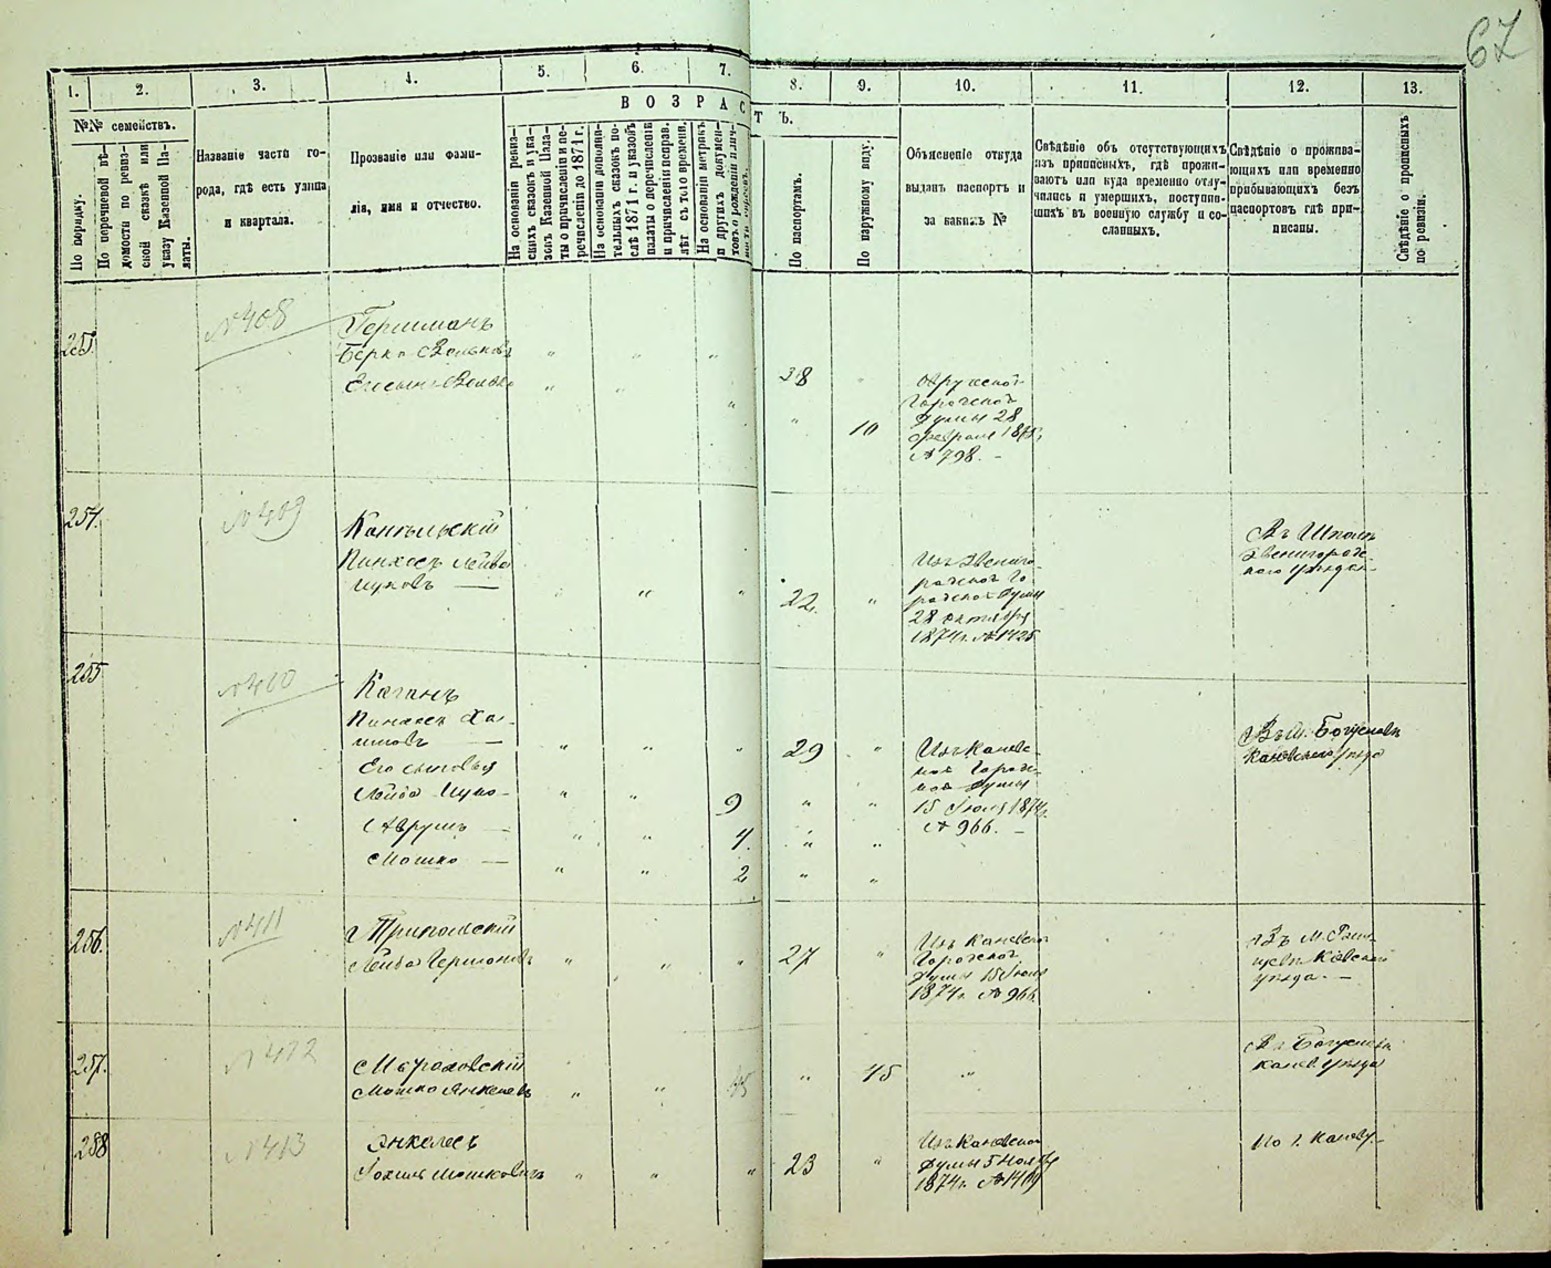 67
1. 2. 3. 4. 5. 6. 7. 8. 9. 10. 11. 12. 13.
№№ семействъ.
По порядку.
По перечневой вѣ-
домости по ревиз-
ской сказкѣ или
указу Казенной Па-
латы.
Названіе части го-
рода, гдѣ есть улица
и квартала.
Прозваніе или фами-
лія, имя и отчество.
ВОЗРАСТЪ.
На основаніи ревиз-
скихъ сказокъ и ука-
зовъ Казенной Пала-
ты о причисленіи и пе-
речисленіи до 1871 г.
На основаніи дополни-
тельныхъ сказокъ по-
слѣ 1871 г. и указовъ
палаты о перечисленіи
и причисленіи исправ.
лѣт съ того времени.
На основаніи метрикъ
и другихъ докумен-
товъ о рожденіи и лич-
По паспортамъ.
По наружному виду.
Объясненіе откуда
выданъ паспортъ и
за какимъ №
Свѣдѣніе объ отсутствующихъ
изъ приписныхъ, гдѣ прожи-
ваютъ или куда временно отлу-
чились и умершихъ, поступив-
шихъ въ военную службу и со-
сланныхъ.
Свѣдѣніе о прожива-
ющихъ или временно
прибывающихъ безъ
паспортовъ гдѣ при-
писаны.
Свѣдѣніе о прописныхъ
по ревизіи.
№ 408
Гершманъ
Берко Вольков
Его сынъ Волько
38
10
Городской
Думы 28
февраля
№ 798.
254.
№ 409
Пинхосъ Лейбо
22.
Изъ Звениго-
родской Го-
родской Думы
28 октября
1874 г. №1425
Въ Шполѣ
Звенигородс-
каго уѣзда
255
№ 410
Каганъ
Пинхосъ Хаи-
мовъ
Его сыновья
Лейба Ицко-
Аврумъ
Мошко
9
4.
2
29
Изъ Каневс-
кой Городс-
кой Думы
15 Іюня 1874 г.
№ 966.
Въ м. Богуславѣ
Каневскаго уѣзда
256.
№ 411
Трипольскій
Лейба Гершонов
27
Изъ Каневской
Городской
Думы 15 Іюня
1874 г. № 966.
Въ м.
уѣзда.
257.
№ 412
Мошко Янкелев
45
45
Въ Богуславѣ
Канев. уѣзда
258
№ 413
Янкелесъ
Мошковичъ
23
Изъ Каневской
Думы 5 Ноября
1874 г. № 1409
По г. Каневу.